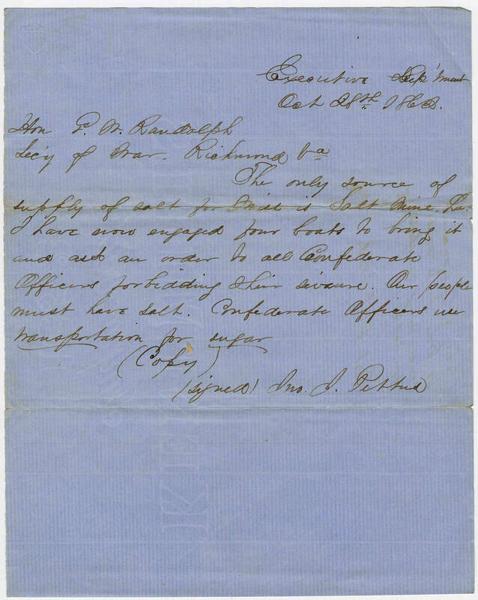 Executive Dep'tment
Oct 28th 1862.
Hon G. W. Randolph
Sec'y of War. Richmond Va
The only source of
supply of salt for Miss is Salt Mine, La.
I have now engaged four boats to bring it
and ask an order to all Confederate
Officers forbidding their seizure. Our people
must have salt. Confederate Officers use
transportation for sugar
(Copy)
(signed) Jno. J. Pettus